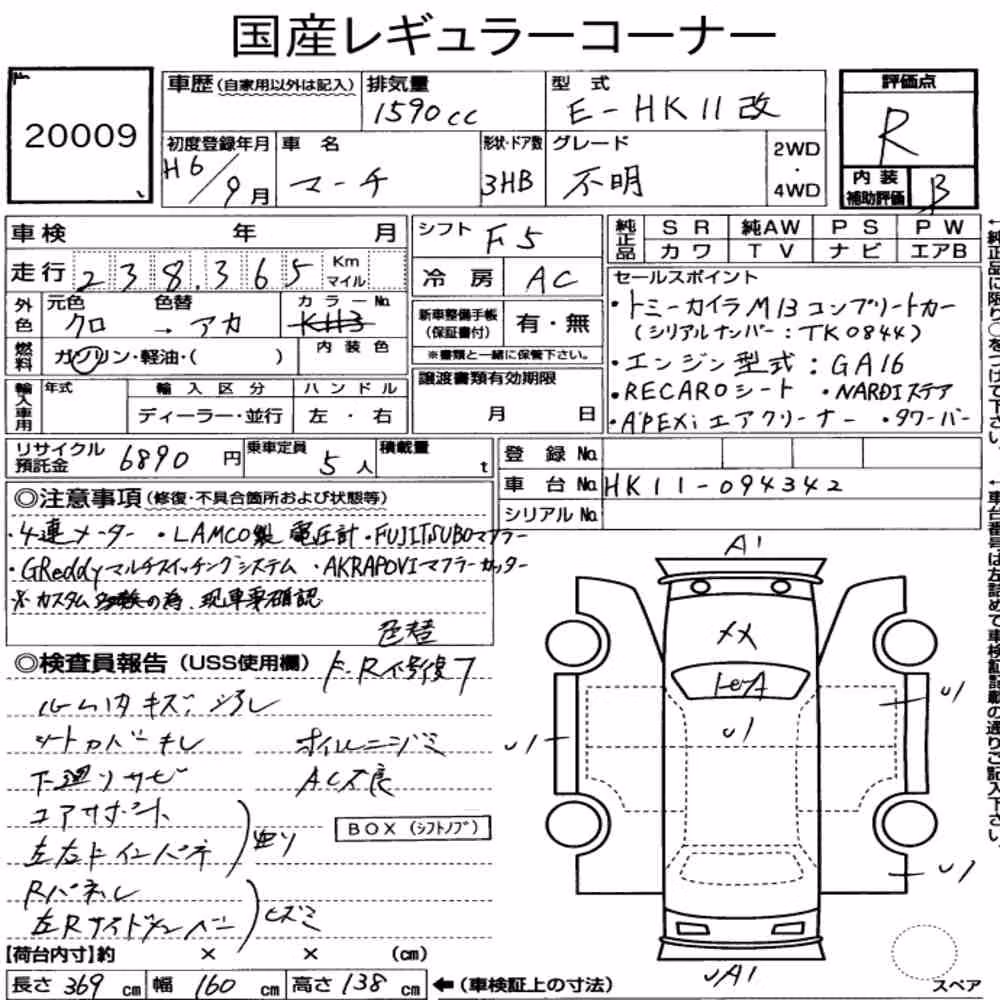 国産レギュラーコーナー
20009
車歴 (自家用以外は記入)
排気量
1590cc
型式
E-HK11改
評価点
R
初度登録年月
H6/9月
車名
マーチ
形状・ドア数
3HB
グレード
不明
2WD
・
4WD
内装
補助評価
B
車検 年 月
シフト F5
純正品
SR 純AW PS PW
カワ TV ナビ エアB
走行 238,365 Km マイル
冷房 AC
セールスポイント
・トミーカイラM13コンプリートカー
(シリアルナンバー:TK0844)
・エンジン型式:GA16
・RECAROシート ・NARDIステア
・APEXiエアクリーナー ・タワーバー
外色 元色 色替 カラーNo.
クロ → アカ KH3
新車整備手帳
(保証書付)
有・無
※書類と一緒に保管下さい。
燃料 ガソリン・軽油・( )
内装色
譲渡書類有効期限
月 日
輸入車用 年式 輸入区分 ハンドル
ディーラー・並行 左・右
リサイクル
預託金 6890円
乗車定員 5人
積載量 t
登録No.
車台No. HK11-094342
シリアルNo.
◎注意事項 (修復・不具合箇所および状態等)
・4連メーター ・LAMCO製 電圧計 ・FUJITSUBOマフラー
・GReddyマルチスイッチングシステム ・AKRAPOVIマフラーカッター
※カスタム の為、現車要確認
色替
◎検査員報告 (USS使用欄)
ルーム内キズ、
シートカバーキレ
オイルニジミ
下廻りサビ
AC不良
コアサポート
左右Fインパネ
曲り
BOX (シフトノブ)
Rパネル
左Rサイドメンバー
ヒズミ
A1
XX
U1
U1
U1
U1
UA1
スペア
[荷台内寸]約 × × (cm)
長さ 369 cm 幅 160 cm 高さ 138 cm ←(車検証上の寸法)
←純正品に限り○をつけて下さい。
←車台番号は左詰めで車検証記載の通りご記入下さい。